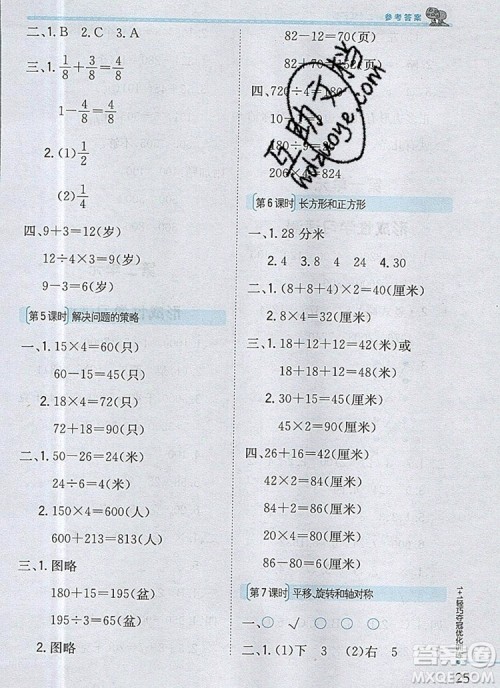 参考答案
二、1. B 2. C 3. A
三、1. 1/8+3/8=4/8
1-4/8=4/8
2. (1) 1/2
(2) 1/4
四、9+3=12(岁)
12÷4=3(岁)
9-3=6(岁)
第5课时 解决问题的策略
一、1. 15×4=60(只)
60÷6=10(只)
2. 18×4=72(只)
72+18=90(只)
二、1. 50-26=24(米)
24÷6=4(米)
2. 150×4=600(人)
600+213=813(人)
三、1. 图略
180+15=195(盆)
195÷3=65(盆)
2. 图略
82-12=70(页)
82+70=152(页)
四、720÷4=180
180÷9=
206×4=824
第6课时 长方形和正方形
一、1. 28 分米
2. 4 3. 8 24 4. 30
二、1. 12×2+8×2=40(厘米)
2. 8×4=32(厘米)
三、1. 18+12+12=42(米)或
18+18+12=48(米)
2. 30+54=84(米)
四、26+16=42(厘米)
42×2=84(厘米)
84+2=86(厘米)
20×4=80(厘米)
86-80=6(厘米)
第7课时 平移、旋转和轴对称
一、✓ ○ ○ ✓
二、1. (1)下 3 (2)右 5
1+1轻巧夺冠优化训练
25
互助文档
hdzuoye.com
作业帮
MXQE.COM